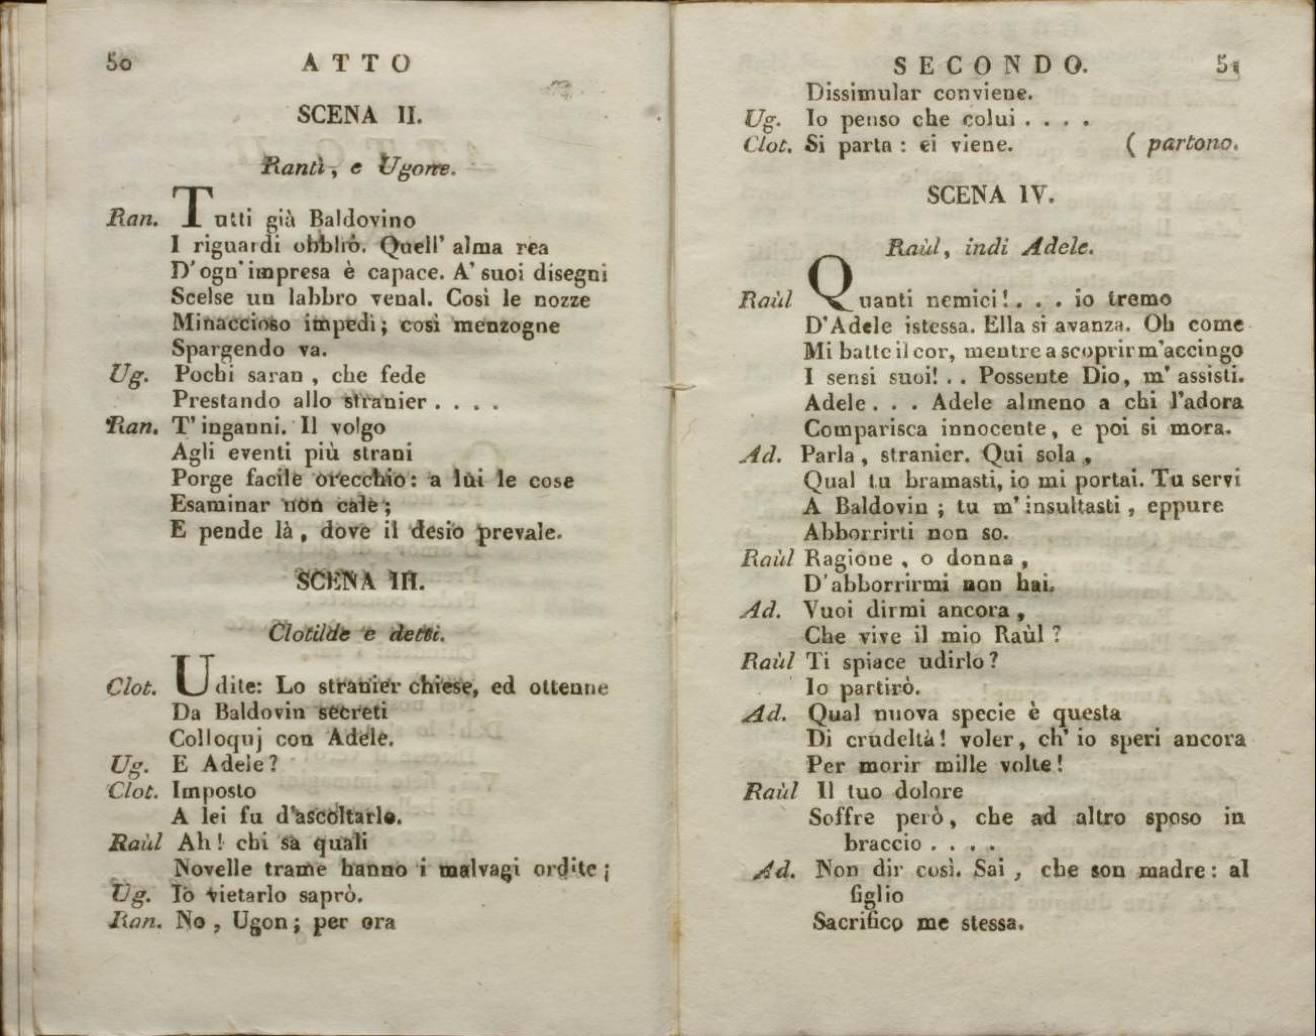 50 ATTO
SCENA II.
Rantì, e Ugone.
Ran. Tutti già Baldovino
I riguardi obbliò. Quell' alma rea
D' ogn' impresa è capace. A' suoi disegni
Scelse un labbro venal. Così le nozze
Minaccioso impedì; così menzogne
Spargendo va.
Ug. Pochi saran, che fede
Prestando allo stranier . . . .
Ran. T' inganni. Il volgo
Agli eventi più strani
Porge facile orecchio: a lui le cose
Esaminar non cale;
E pende là, dove il desio prevale.
SCENA III.
Clotilde e detti.
Clot. Udite: Lo stranier chiese, ed ottenne
Da Baldovin secreti
Colloquj con Adele.
Ug. E Adele?
Clot. Imposto
A lei fu d'ascoltarlo.
Raùl Ah! chi sa quali
Novelle trame hanno i malvagi ordite;
Ug. Io vietarlo saprò.
Ran. No, Ugon; per ora
SECONDO. 51
Dissimular conviene.
Ug. Io penso che colui . . . .
Clot. Si parta: ei viene. ( partono.
SCENA IV.
Raùl, indi Adele.
Raùl Quanti nemici! . . . io tremo
D'Adele istessa. Ella si avanza. Oh come
Mi batte il cor, mentre a scoprir m'accingo
I sensi suoi! . . Possente Dio, m' assisti.
Adele . . . Adele almeno a chi l'adora
Comparisca innocente, e poi si mora.
Ad. Parla, stranier. Qui sola,
Qual tu bramasti, io mi portai. Tu servi
A Baldovin; tu m' insultasti, eppure
Abborrirti non so.
Raùl Ragione, o donna,
D'abborrirmi non hai.
Ad. Vuoi dirmi ancora,
Che vive il mio Raùl?
Raùl Ti spiace udirlo?
Io partirò.
Ad. Qual nuova specie è questa
Di crudeltà! voler, ch' io speri ancora
Per morir mille volte!
Raùl Il tuo dolore
Soffre però, che ad altro sposo in
braccio . . . .
Ad. Non dir così. Sai, che son madre: al
figlio
Sacrifico me stessa.